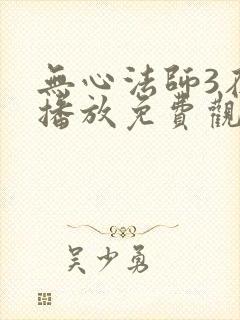 無心法師3
播放免費觀
吴少勇